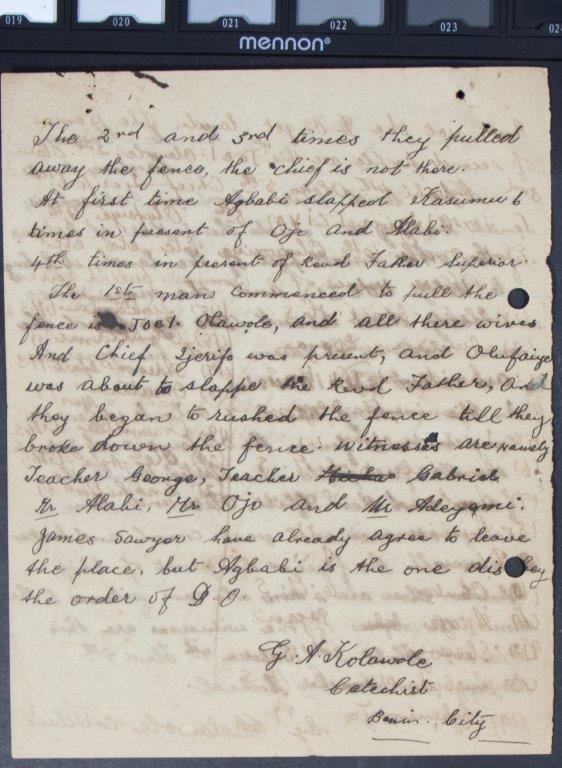 019 020 021 022 023 024
mennon®
The 2nd and 3rd times they pulled
away the fence, the chief is not there.
At first time Agbabi slapped Kasumu 6
times in present of Ojo and Alabi
4th times in present of Revd Father Superior.
The 1st man commenced to pull the
fence is Joel. Olawole, and all there wives
And Chief was present, and
was about to slappe the Revd Father, And
they began to rushed the fence till they
broke down the fence. Witnesses are Namely
Teacher George, Teacher Gabriel
Mr Alabi, Mr Ojo and Mr Adeyemi.
James Sawyer have already agree to leave
the place, but Agbabi is the one disobey
the order of D.O.
G. A. Kolawole
Catechist
Benin City